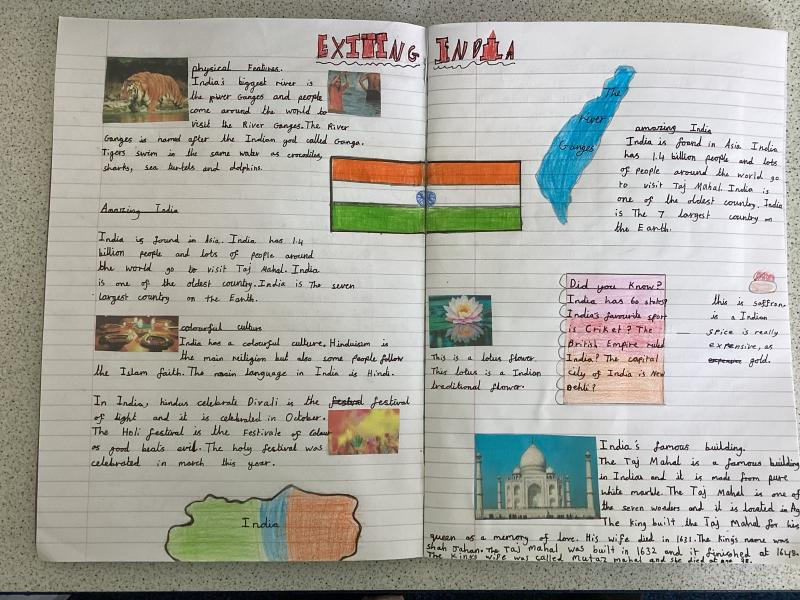 EXITING INDIA
physical Features.
India's biggest river is
the river Ganges and people
come around the world to
visit the River Ganges. The River
Ganges is named after the Indian god called Ganga.
Tigers swim in the same water as crocodiles,
sharks, sea turtels and dolphins.
Amazing India
India is found in Asia. India has 1.4
billion people and lots of people around
the world go to visit Taj Mahal. India
is one of the oldest country. India is The seven
largest country on the Earth.
colourful culture
India has a colourful culture. Hinduism is
the main religion but also some people follow
the Islam faith. The main language in India is Hindi.
In India, hindus celebrate Divali is the festival festival
of light and it is celebrated in October.
The Holi festival is the Festivale of Colour
as good beats evil. The holy festival was
celebrated in march this year.
India
The
River
Ganges
amazing India
India is found in Asia India
has 1.4 billion people and lots
of people around the world go
to visit Taj Mahal. India is
one of the oldest country. India
is The 7 largest country on
the Earth.
This is a lotus flower.
This lotus is a Indian
traditional flower.
Did you Know?
India has 60 states?
India's favourite sport
is Criket? The
British Empire ruled
India? The capital
city of India is New
Dehli?
this is saffron
is a Indian
spice is really
expensive, as
expensive gold.
India's famous building.
The Taj Mahal is a famous building
in Indian and it is made from pure
white marble. The Taj Mahal is one of
the seven wonders and it is located in Ag
The king built the Taj Mahal for his
queen as a memory of love. His wife died in 1631. The kings name was
shah Jahan. The Taj mahal was built in 1632 and it finished at 1648.
The kings wife was called Mutaz mahal and she died at age 38.